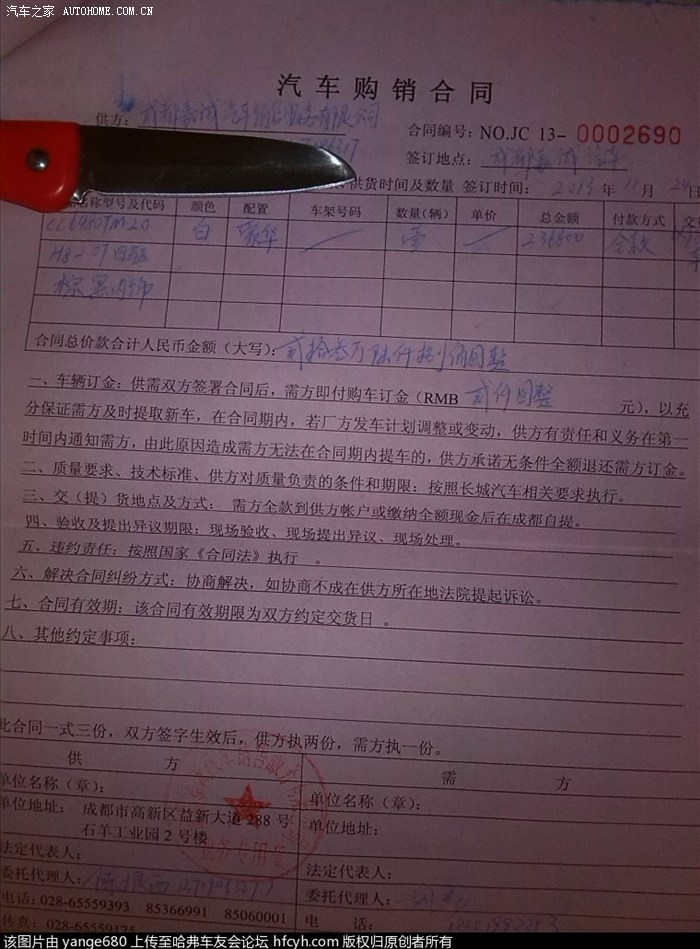 汽车之家 AUTOHOME.COM.CN
汽车购销合同
供方：成都嘉诚汽车销售服务有限公司
合同编号：NO.JC 13-0002690
签订地点：成都嘉诚汽车
供货时间及数量 签订时间：2013年11月
名称型号及代码 颜色 配置 车架号码 数量(辆) 单价 总金额 付款方式 交
CC6480TM20 白 豪华 壹 236800 全款
H8 2.0T 四驱
棕黑内饰
合同总价款合计人民币金额（大写）：贰拾叁万陆仟捌佰圆整
一、车辆订金：供需双方签署合同后，需方即付购车订金（RMB 贰仟圆整 元），以充
分保证需方及时提取新车，在合同期内，若厂方发车计划调整或变动，供方有责任和义务在第一
时间内通知需方，由此原因造成需方无法在合同期内提车的，供方承诺无条件全额退还需方订金。
二、质量要求、技术标准、供方对质量负责的条件和期限：按照长城汽车相关要求执行。
三、交（提）货地点及方式： 需方全款到供方帐户或缴纳全额现金后在成都自提。
四、验收及提出异议期限：现场验收、现场提出异议、现场处理。
五、违约责任：按照国家《合同法》执行 。
六、解决合同纠纷方式：协商解决，如协商不成在供方所在地法院提起诉讼。
七、合同有效期：该合同有效期限为双方约定交货日 。
八、其他约定事项：
此合同一式三份，双方签字生效后，供方执两份，需方执一份。
供 方
需 方
单位名称（章）：
单位名称（章）：
单位地址： 成都市高新区益新大道288号
石羊工业园2号楼
单位地址：
业务专用章
法定代表人：
法定代表人：
委托代理人：
委托代理人：
电话：028-65559393 85366991 85060001
电 话：
传真：028-65559125
该图片由 yange680 上传至哈弗车友会论坛 hfcyh.com 版权归原创者所有